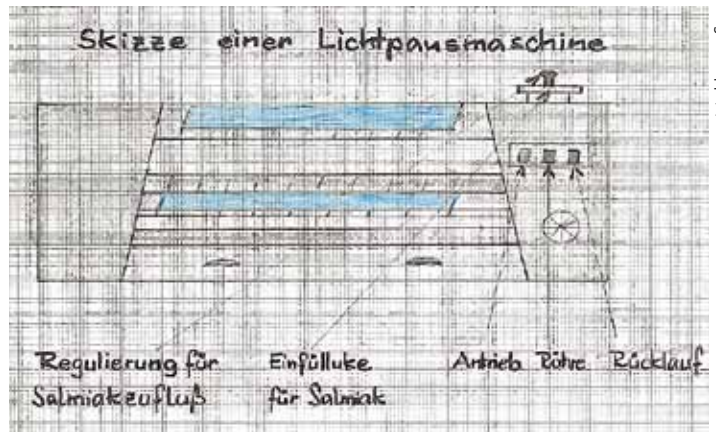 Skizze einer Lichtpausmaschine
Regulierung für
Salmiakzufluß
Einfülluke
für Salmiak
Antrieb Röhre Rücklauf